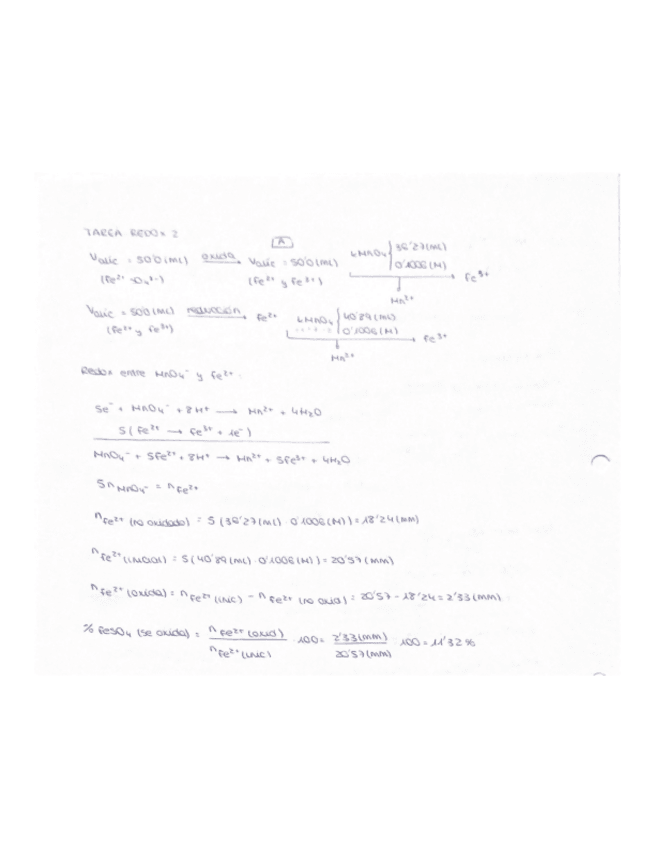 TAREA REDOX 2
A
Valíc = 50'0 (mL) oxida Valíc = 50'0 (mL) KMnO₄ 36'27 (mL)
0'1006 (M)
(Fe²⁺ (Fe²⁺ y Fe³⁺) Fe³⁺
Mn²⁺
Valíc = 50'0 (mL) reducción Fe²⁺ KMnO₄ 40'89 (mL)
0'1006 (M)
(Fe²⁺ y Fe³⁺) Fe³⁺
Mn²⁺
Redox entre MnO₄⁻ y Fe²⁺:
5e⁻ + MnO₄⁻ + 8H⁺ → Mn²⁺ + 4H₂O
5 (Fe²⁺ → Fe³⁺ + 1e⁻)
MnO₄⁻ + 5Fe²⁺ + 8H⁺ → Mn²⁺ + 5Fe³⁺ + 4H₂O
5 n MnO₄⁻ = n Fe²⁺
n Fe²⁺ (no oxidado) = 5 (36'27 (mL) · 0'1006 (M)) = 18'24 (mm)
n Fe²⁺ (inicial) = 5 (40'89 (mL) · 0'1006 (M)) = 20'57 (mm)
n Fe²⁺ (oxida) = n Fe²⁺ (inic) - n Fe²⁺ (no oxid) = 20'57 - 18'24 = 2'33 (mm)
% FeSO₄ (se oxida) = n Fe²⁺ (oxid) / n Fe²⁺ (inic) · 100 = 2'33 (mm) / 20'57 (mm) · 100 = 11'32 %